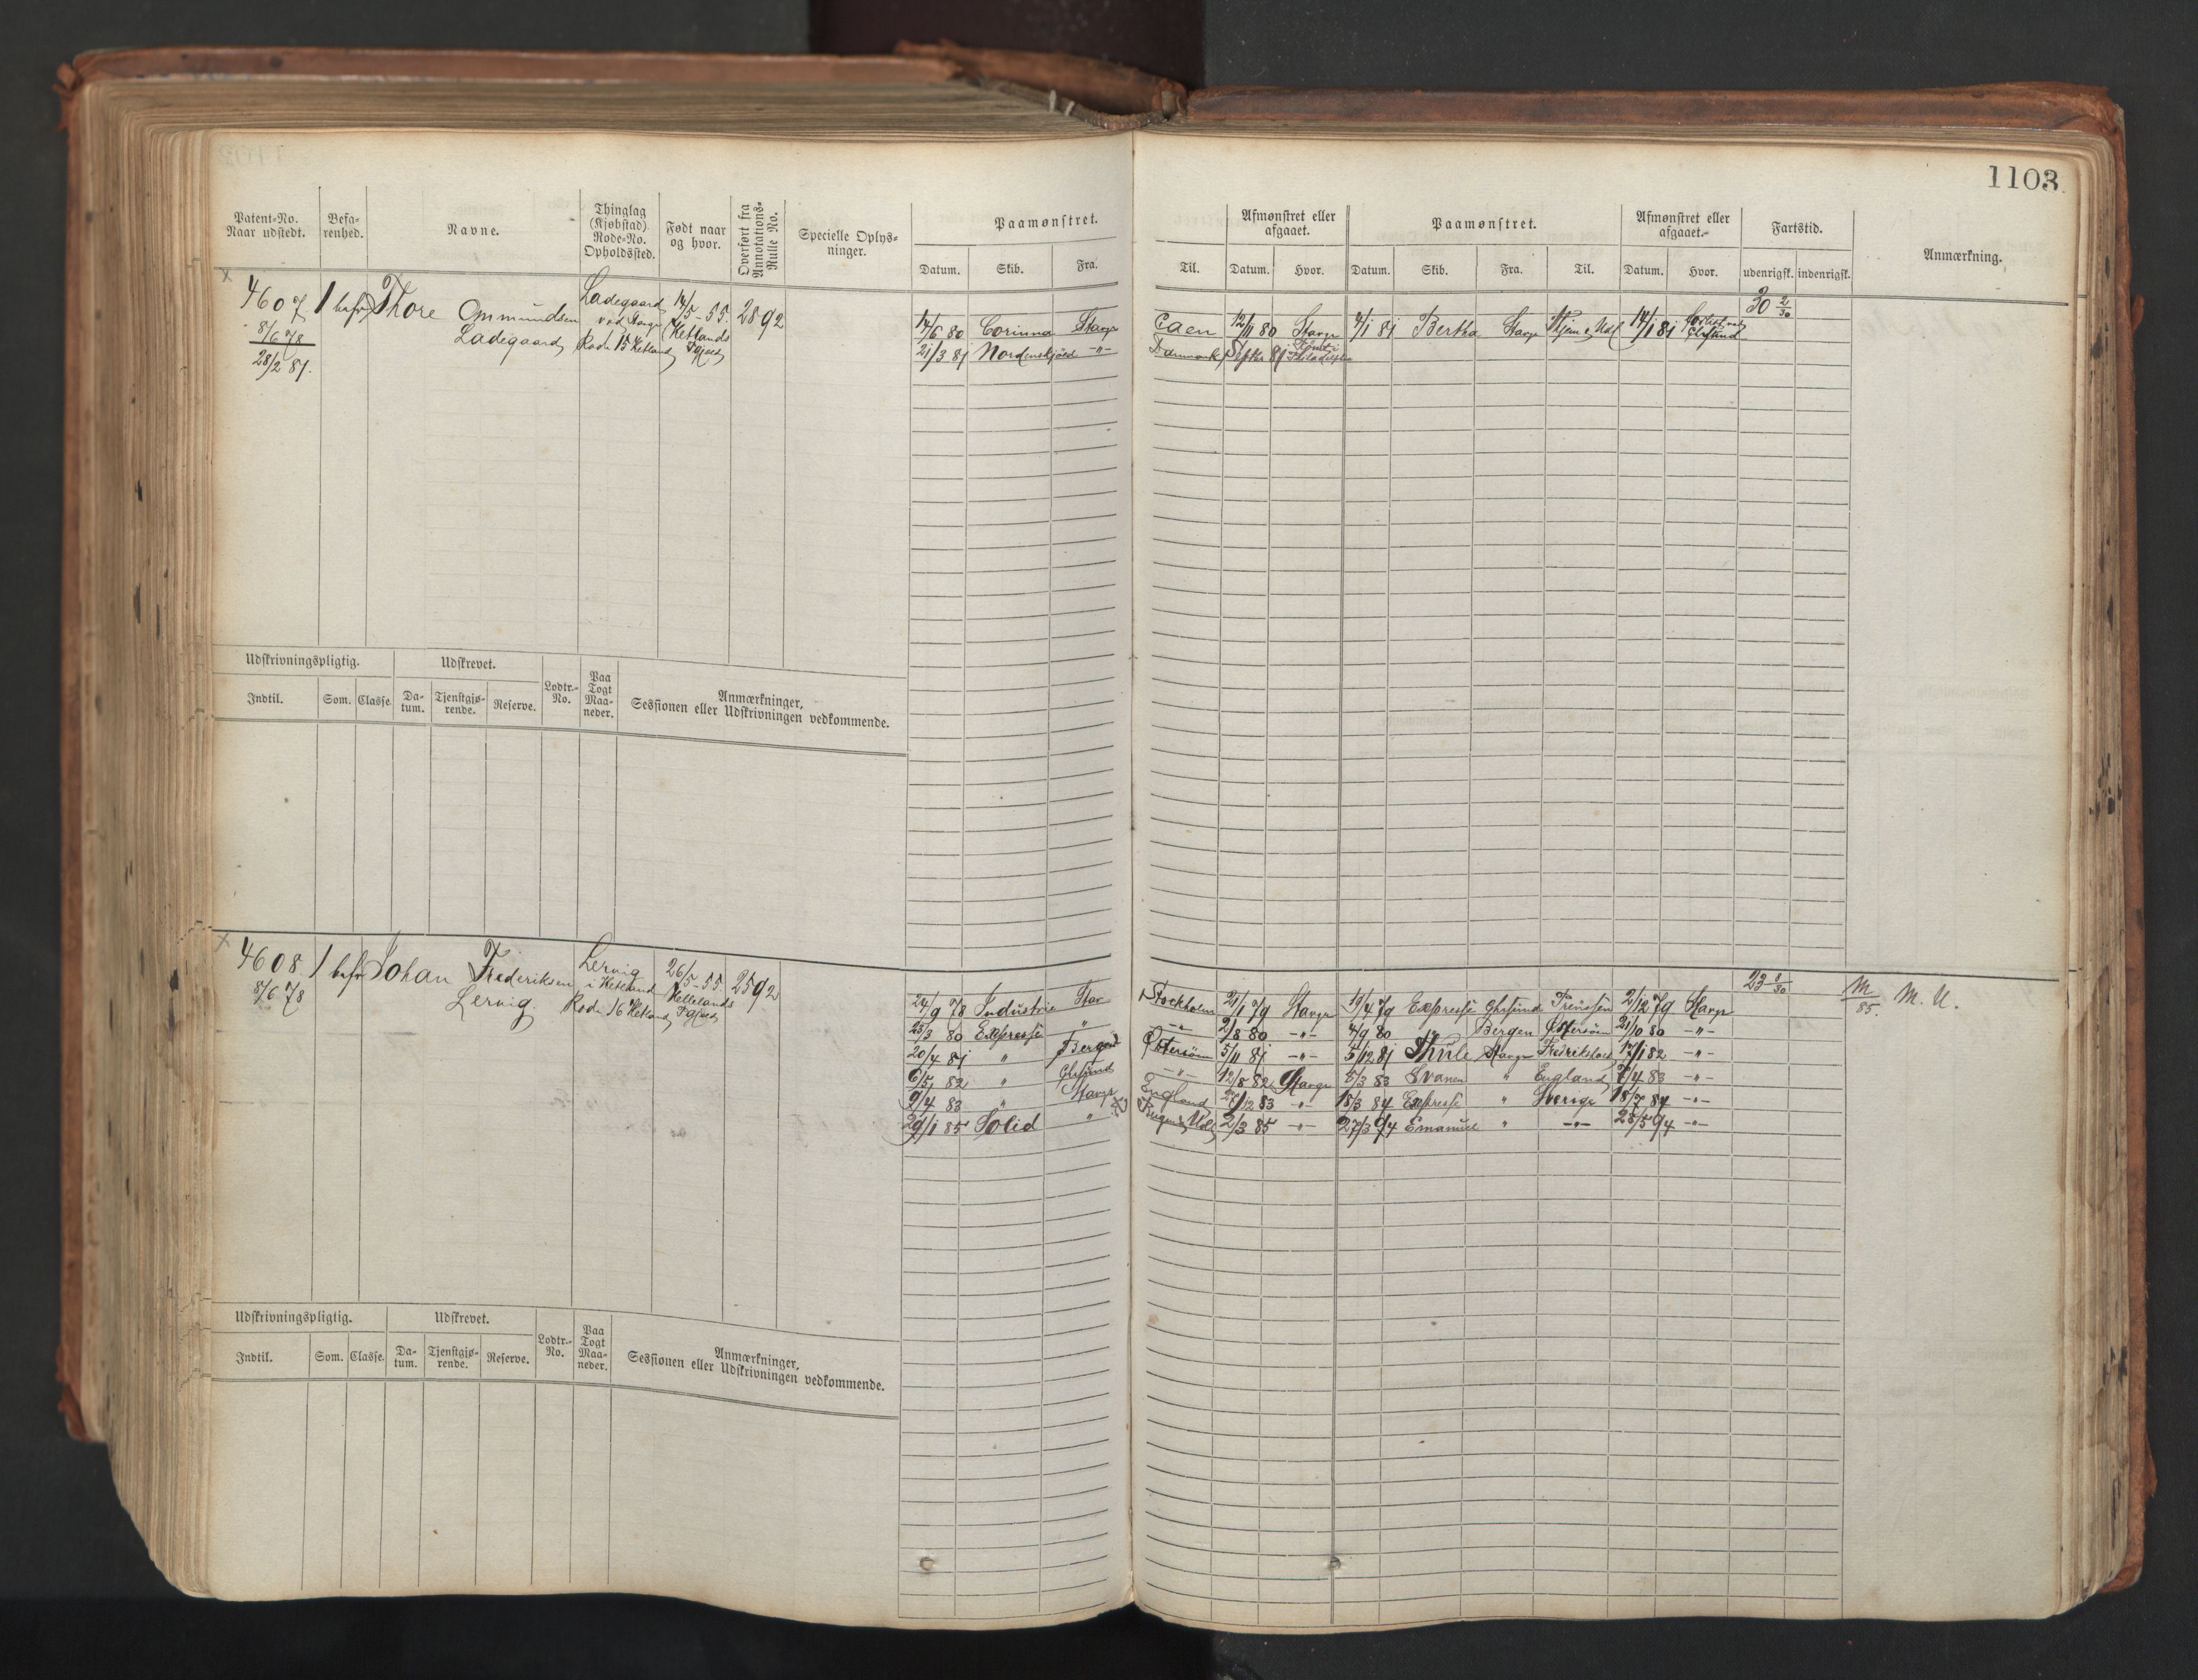 1103.
Patent-No. Naar udstedt.
Befa-renhed.
Navne.
Thinglag (Kjøbstad). Rode-No. Opholdssted.
Født naar og hvor.
Overført fra Annotations-Rulle No.
Specielle Oplys-ninger.
Paamønstret.
Datum. Skib. Fra.
Til.
Afmønstret eller afgaaet.
Datum. Hvor.
Paamønstret.
Datum. Skib. Fra. Til.
Afmønstret eller afgaaet.
Datum. Hvor.
Fartstid.
udenrigsk. indenrigsk.
Anmærkning.
4607 1 befr Thore Ommundsen
Ladegaard
8/6 78
28/2 81.
Ladegaard
ved Stavgr
Rode 15 Hetland
14/5 - 55.
Hetlands
Pgjeld
2892
14/6 80 Corinna Stavgr Caen 12/11 80 Stavgr 4/1 81 Bertha Stavgr 14/1 81
30 2/30
21/3 81 Nordenskjöld -"- Danmark Septbr 81 Philadelphia
Udskrivningspligtig.
Indtil. Som. Classe.
Udskrevet.
Da-tum. Tjenstgjø-rende. Reserve.
Lodtr.-No.
Paa Togt Maa-neder.
Anmærkninger, Sessionen eller Udskrivningen vedkommende.
4608 1 befr Johan Frederiksen
Lervig.
8/6 78
Lervig
i Hetland
Rode 16 Hetland
26/5 - 55.
Hetlands
Pgjeld
2592
24/9 78 Industrie Stav Stockholm 21/1 79 Stavgr 19/4 79 Expressé Ghsund 2/12 79 Stavgr
23 8/30
M/85. M. U.
23/3 80 Expressé " -"- 2/8 80 -"- 4/9 80 " Bergen Østersöen 21/10 80 -"-
20/4 81 " Bergen Østersöen 5/11 81 -"- 5/12 81 Thule Stavgr Fredrikstad 17/1 82 -"-
6/5 82 " Ghsund -"- 12/8 82 Stavgr 5/3 83 Svanen " England 7/4 83 -"-
9/4 83 " Stavgr England 27/12 83 -"- 18/3 84 Expressé " Sverige 18/7 84 -"-
29/1 85 Solid " 2/3 85 -"- 27/3 94 Emanuel " -"- 28/5 94 -"-
Udskrivningspligtig.
Indtil. Som. Classe.
Udskrevet.
Da-tum. Tjenstgjø-rende. Reserve.
Lodtr.-No.
Paa Togt Maa-neder.
Anmærkninger, Sessionen eller Udskrivningen vedkommende.